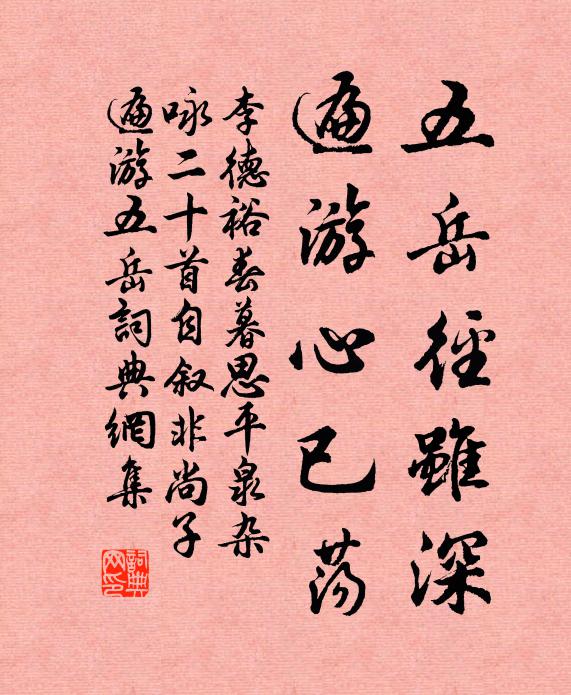 五岳徑雖深
遍游心已荡
李德裕春暮思平泉杂
咏二十首自叙非尚子
遍游五岳詞典網集
詞典網印